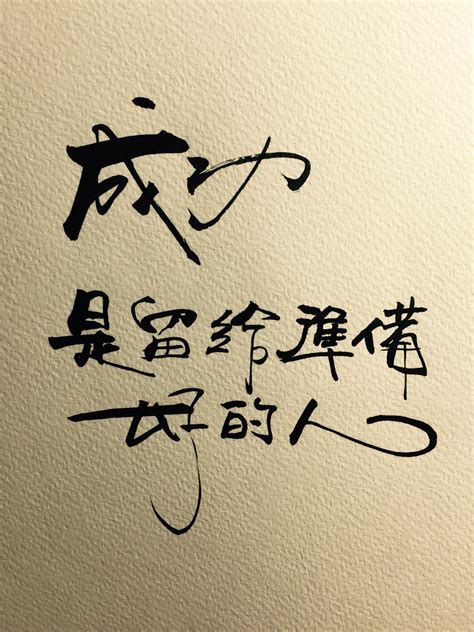 成功
是留給準備
好的人